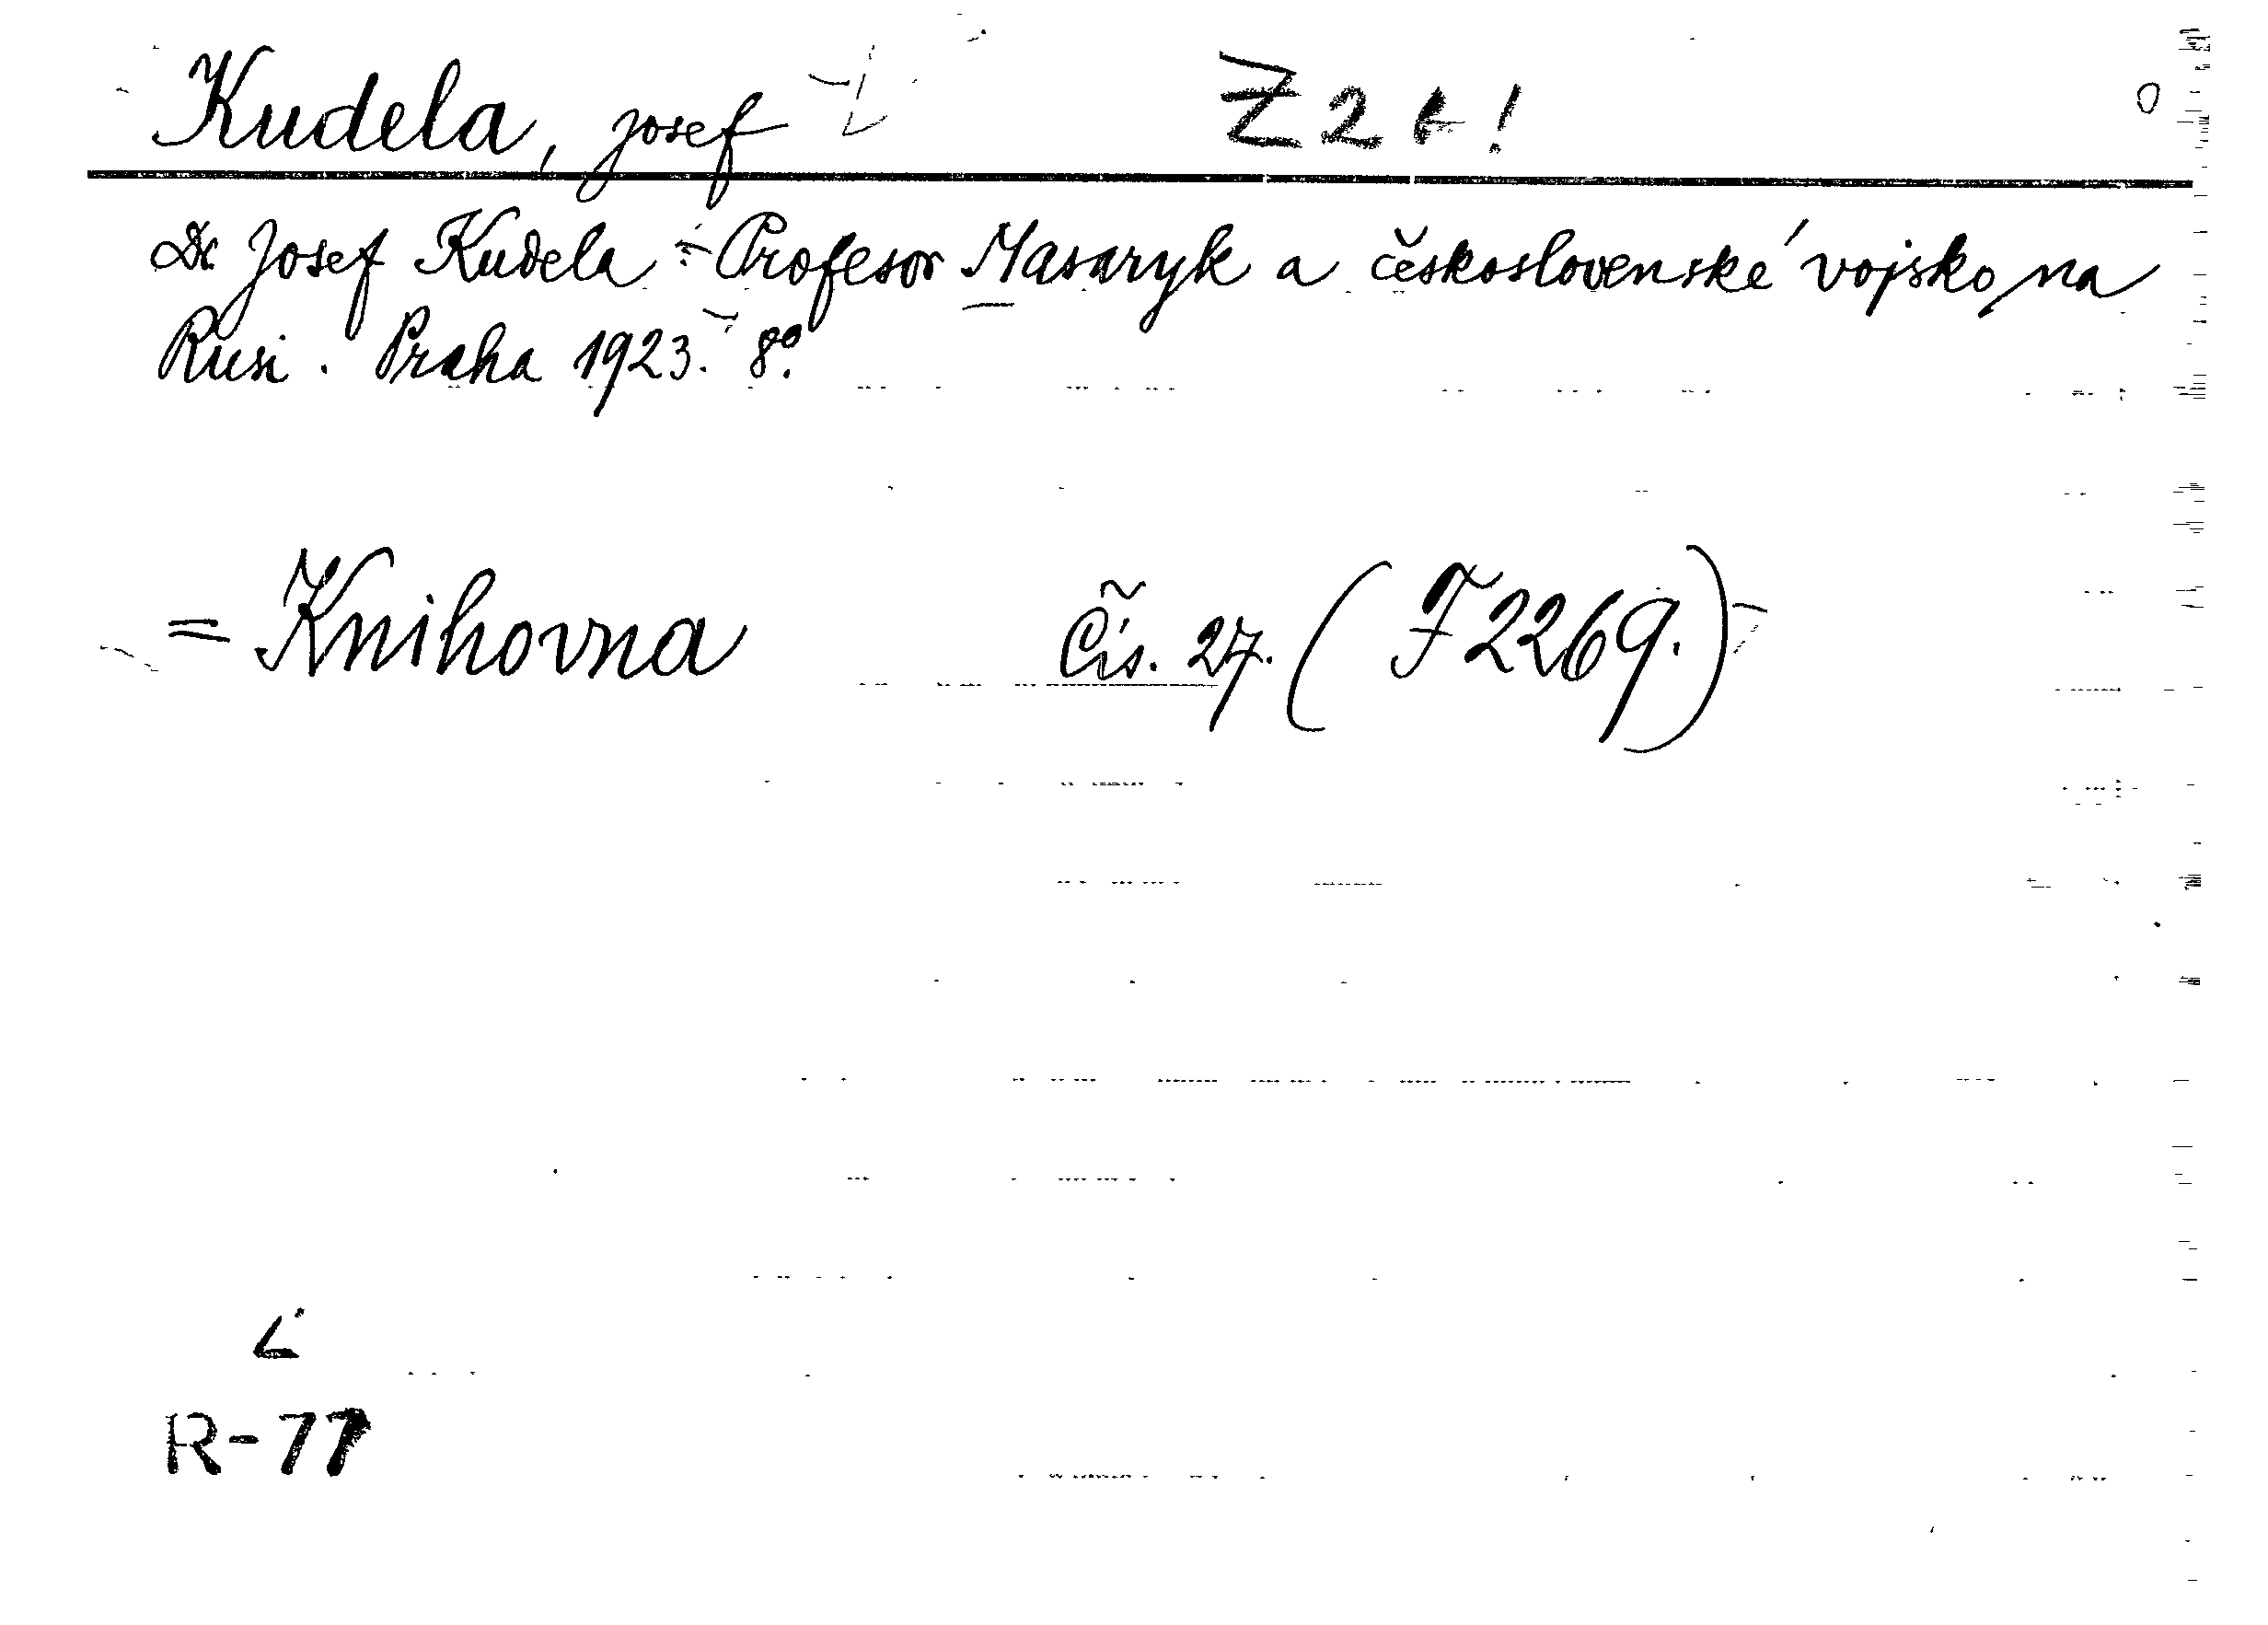 Kudela, Josef
Dr Josef Kudela : Profesor Masaryk a československé vojsko na
Rusi. Praha 1923. 8°.
= Knihovna Čís. 27. (F 2269.)
R-77